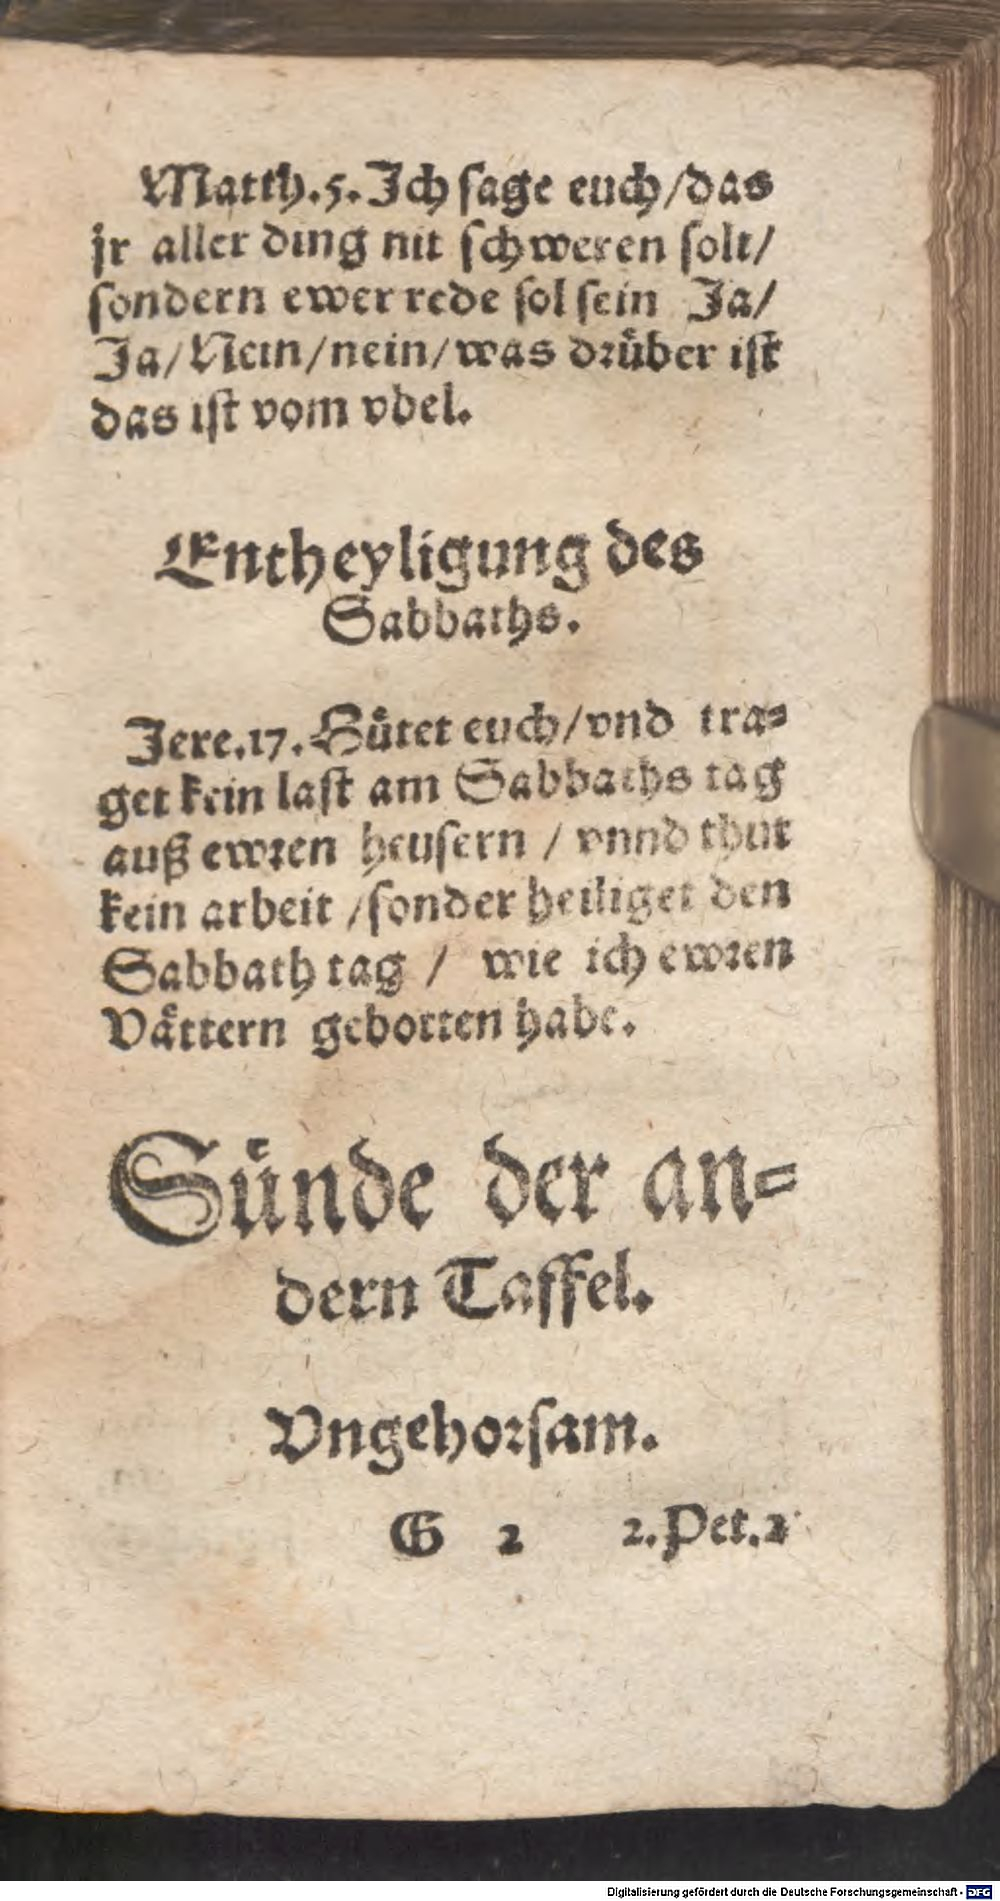 Matth.5. Ich sage euch/das
jr aller ding nit schweren solt/
sondern ewer rede sol sein Ja/
Ja/Nein/nein/was drüber ist
das ist vom vbel.
Entheyligung des
Sabbaths.
Jere.17. Hütet euch/vnd tra-
get kein last am Sabbaths tag
auß ewren heusern / vnnd thut
kein arbeit /sonder heiliget den
Sabbath tag / wie ich ewren
Vättern gebotten habe.
Sünde der an-
dern Taffel.
Vngehorsam.
G 2 2.Pet.2
Digitalisierung gefördert durch die Deutsche Forschungsgemeinschaft - DFG